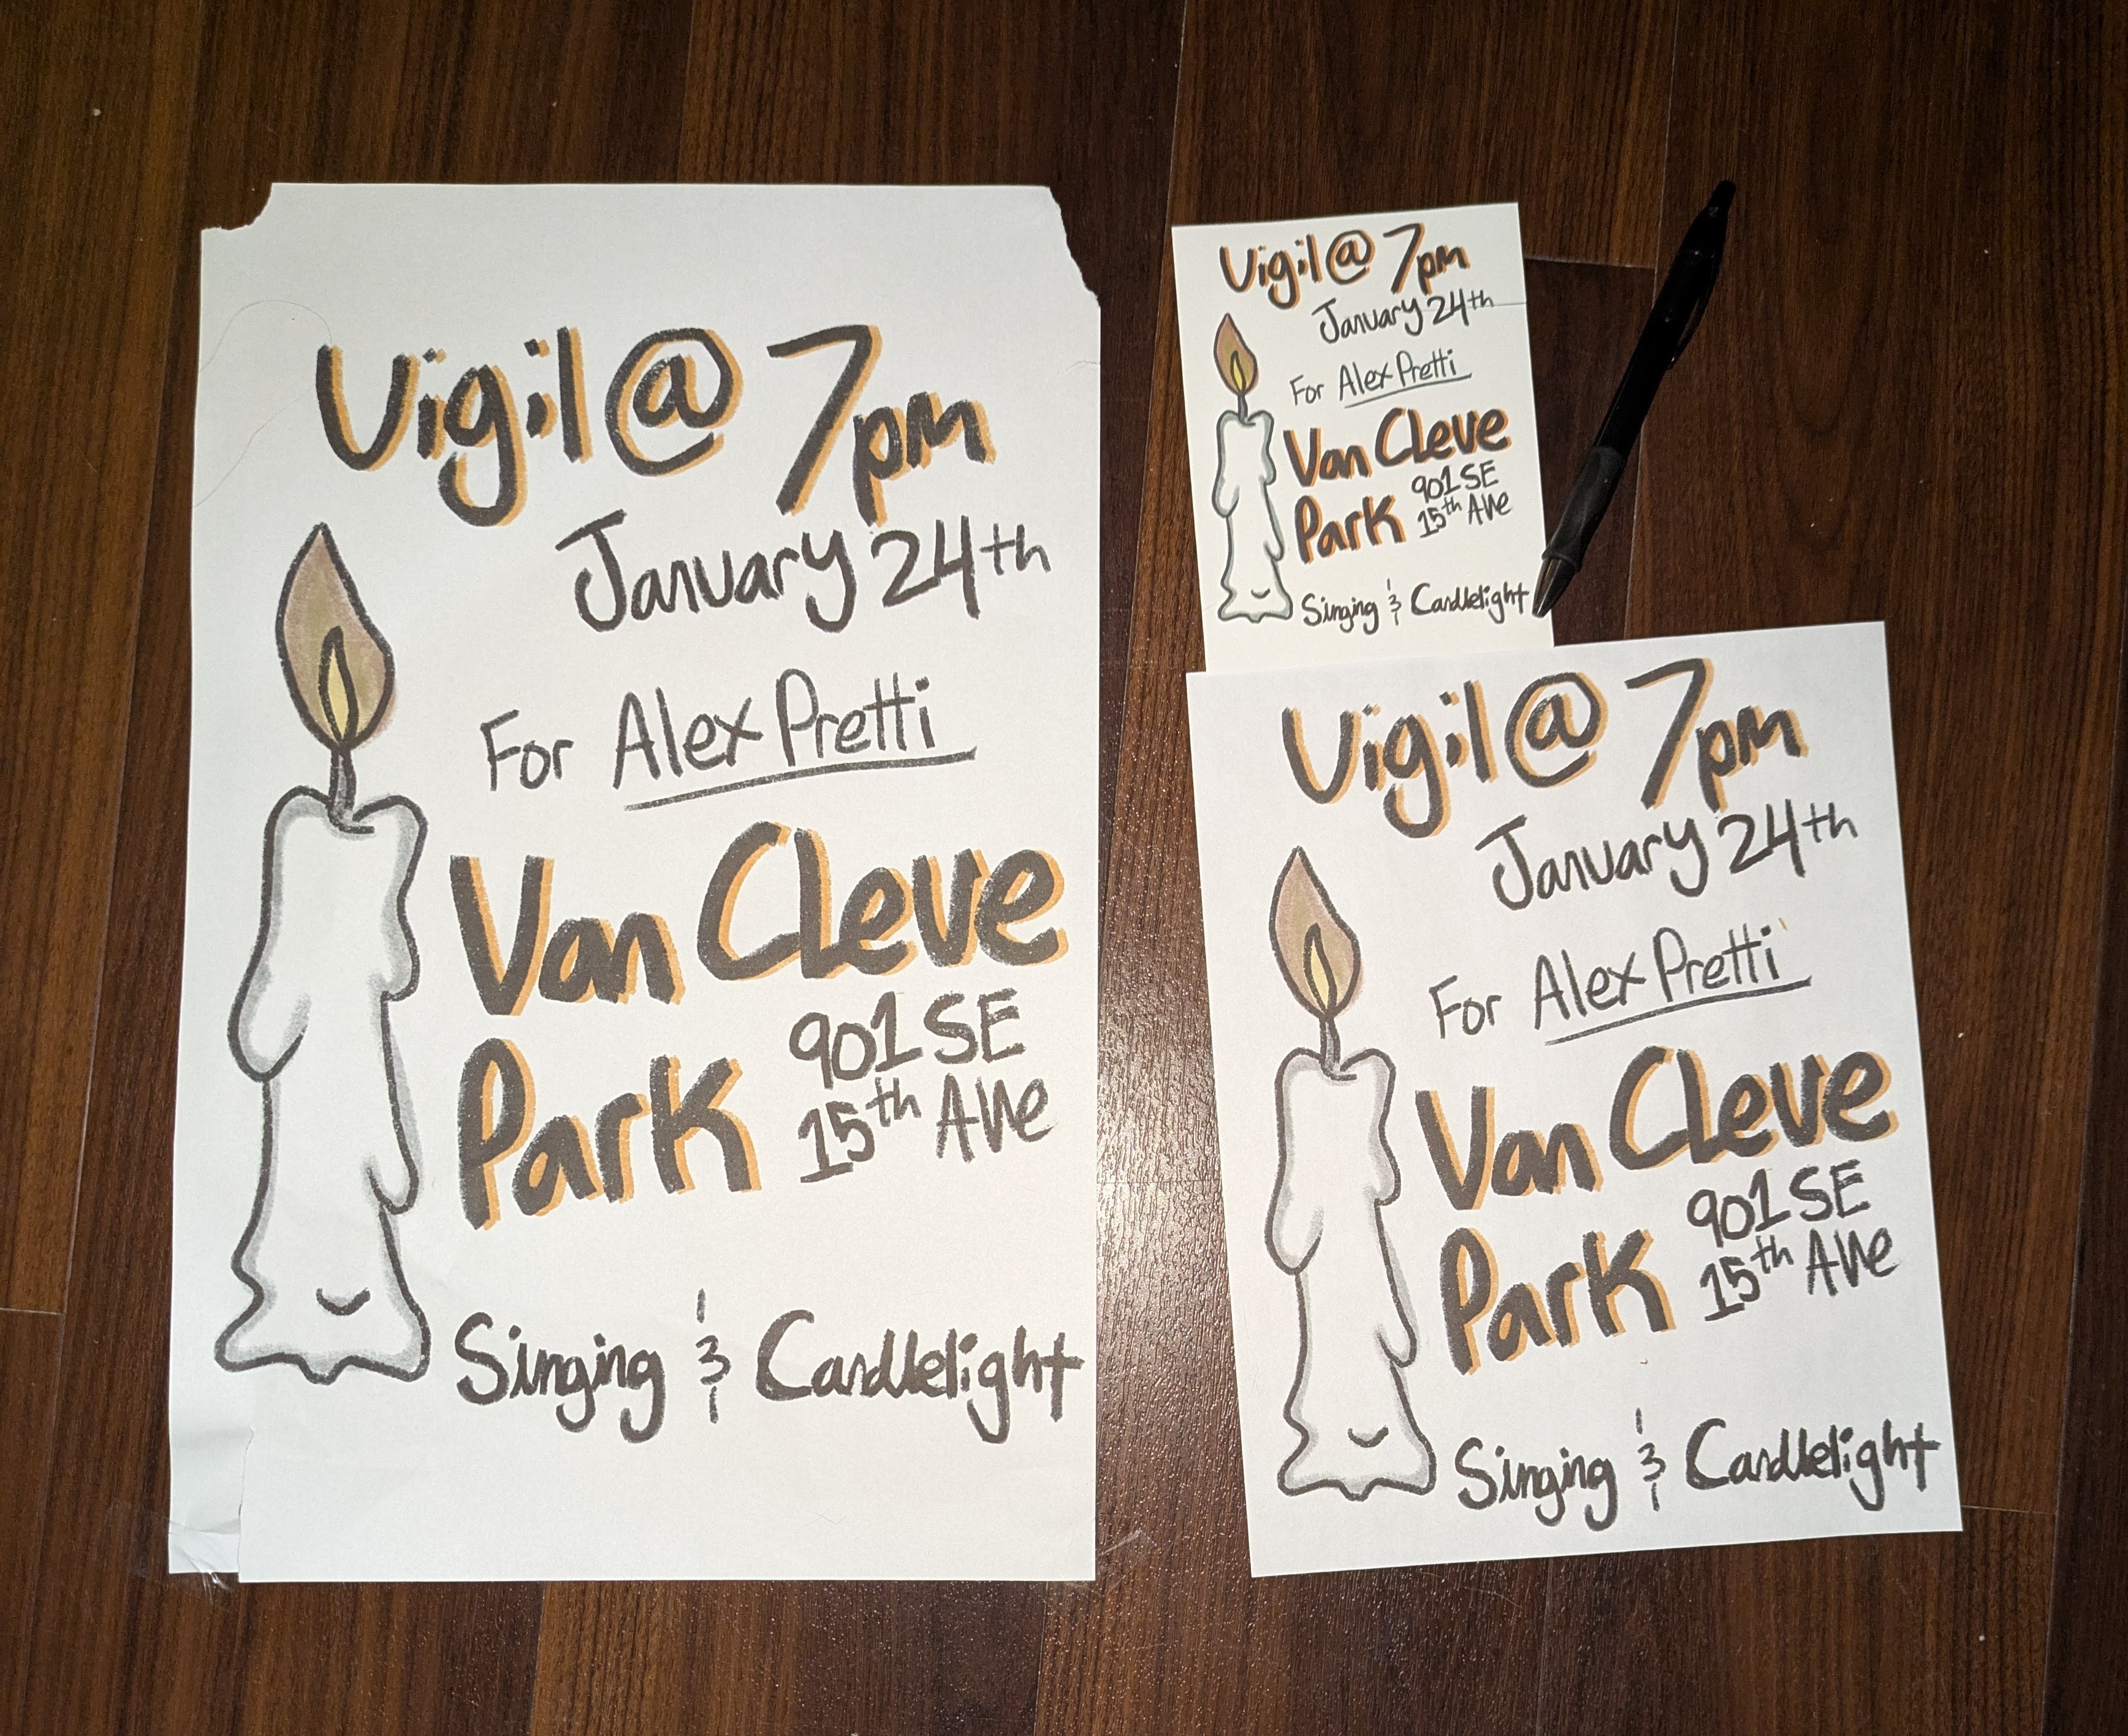 Vigil @ 7pm
January 24th
For Alex Pretti
Van Cleve
Park
901 SE
15th Ave
Singing & Candlelight
Vigil @ 7pm
January 24th
For Alex Pretti
Van Cleve
Park
901 SE
15th Ave
Singing & Candlelight
Vigil @ 7pm
January 24th
For Alex Pretti
Van Cleve
Park
901 SE
15th Ave
Singing & Candlelight